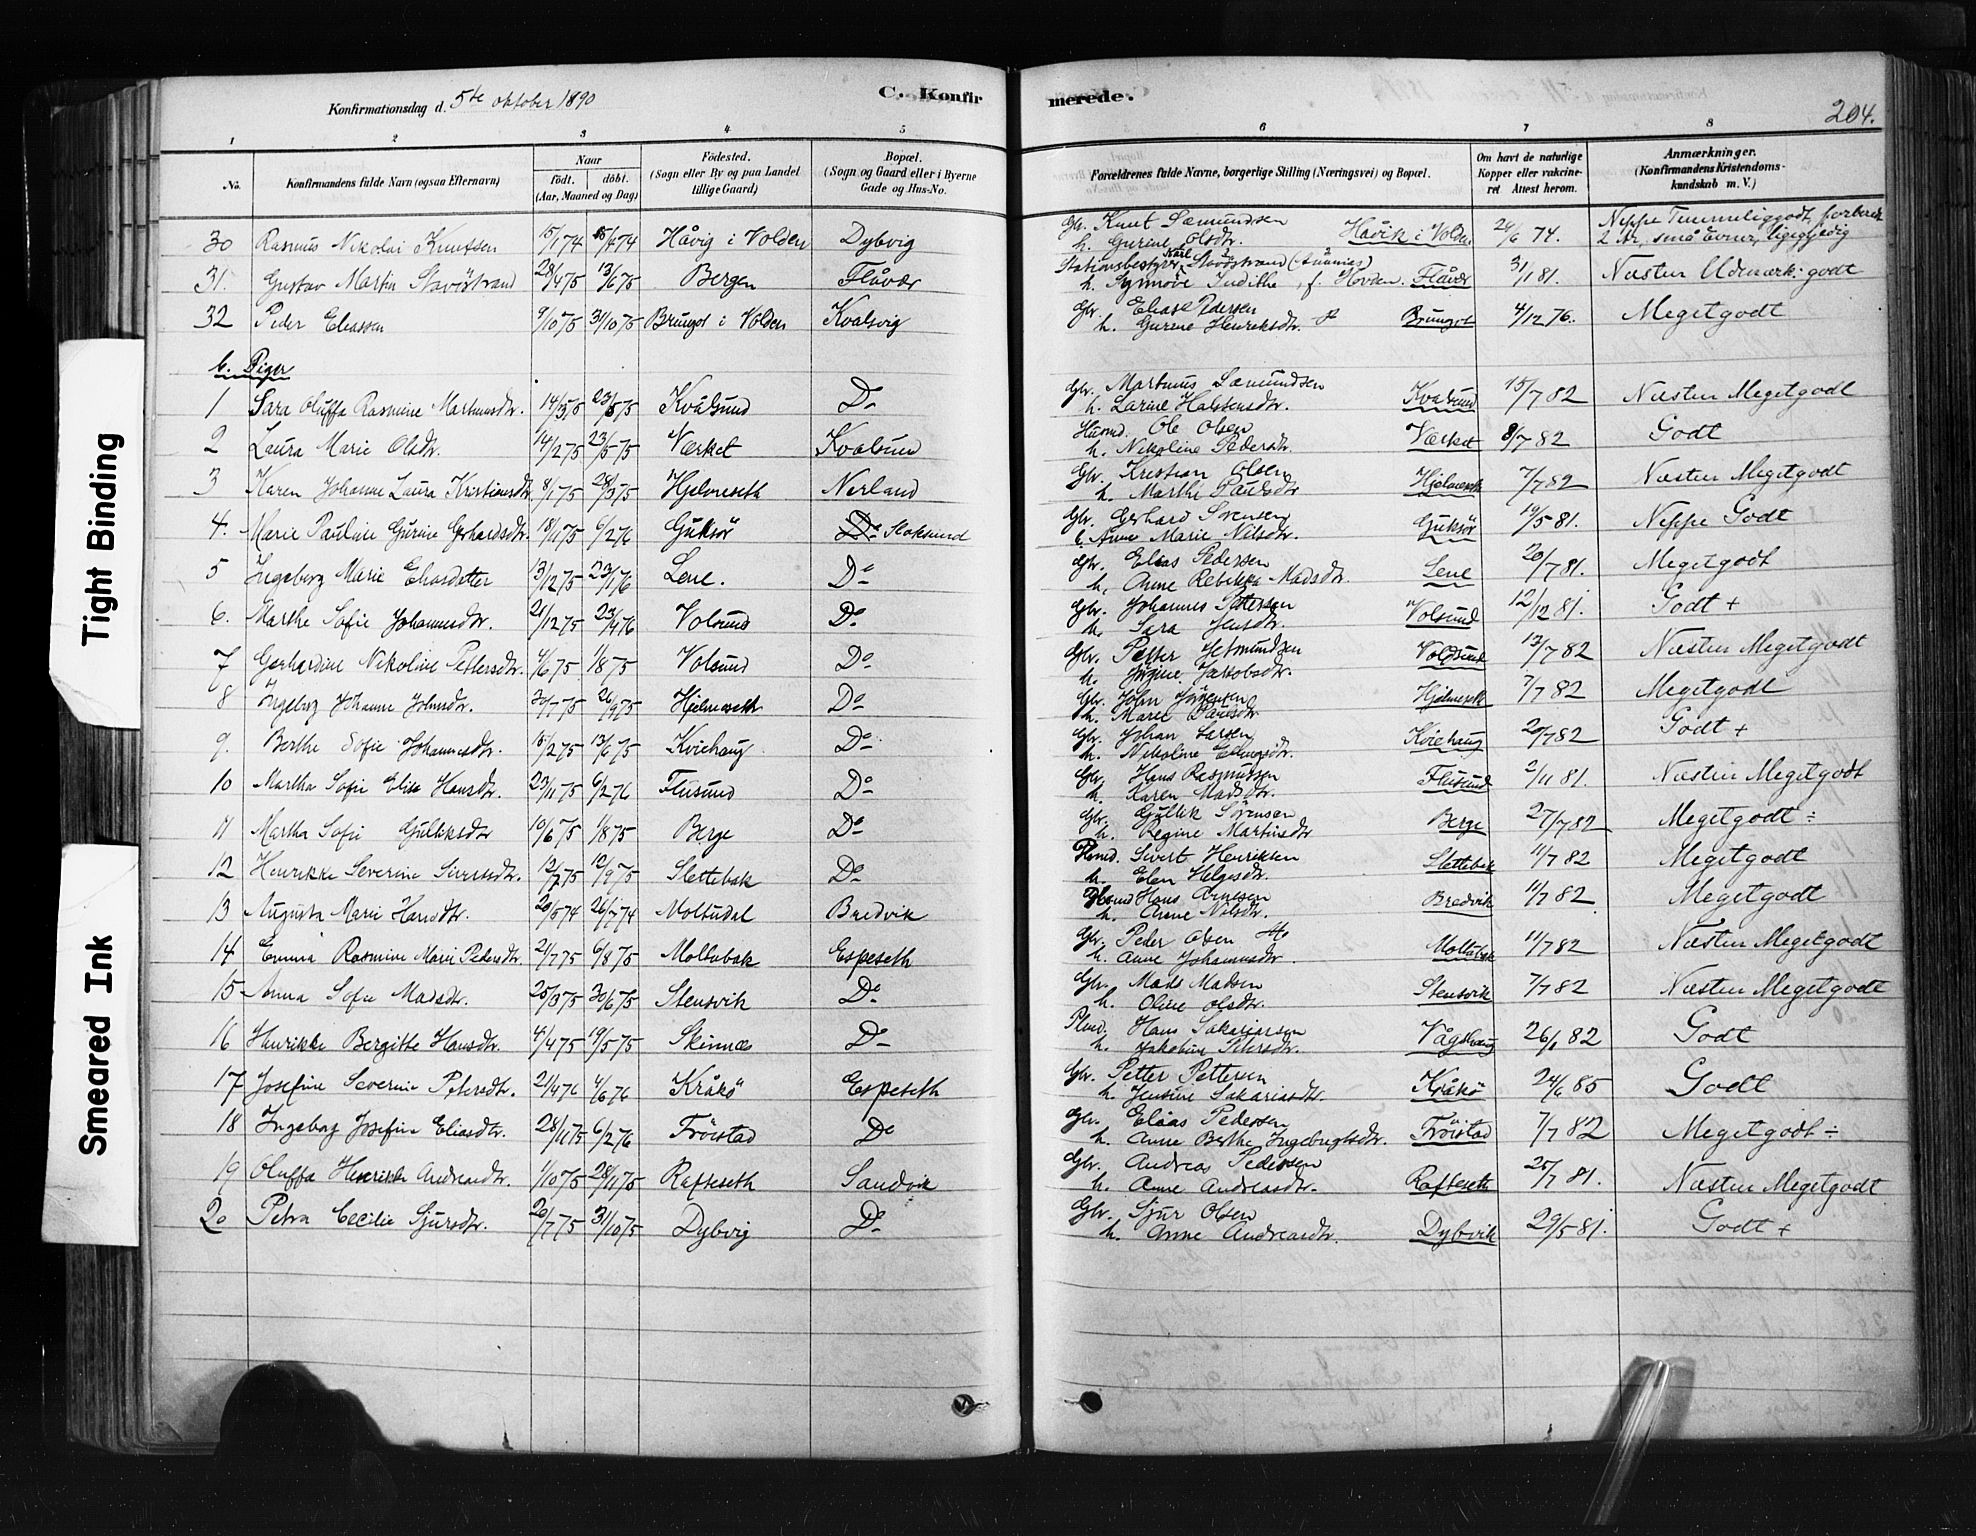 Konfirmationsdag d. 5te oktober 1890
C. Konfir
merede.
204.
1 2 3 4 5 6 7 8
No.
Konfirmandens fulde Navn (ogsaa Efternavn)
Naar
født. døbt.
(Aar, Maaned og Dag)
Fødested.
(Sogn eller By og paa Landet
tillige Gaard)
Bopæl.
(Sogn og Gaard eller i Byerne
Gade og Hus-No.
Forældrenes fulde Navne, borgerlige Stilling (Næringsvei) og Bopæl.
Om havt de naturlige
Kopper eller vakcine-
ret Attest herom.
Anmærkninger.
(Konfirmandens Kristendoms-
kundskab m. V.)
30 Rasmus Nikolai Knutsen 15/1 74 /4 74 Håvig i Volden Dybvig Gbr. Knut Sæmundsen h. Gurine Olsdtr. Håvik i Volden 24/6 74. Neppe Temmeliggodt, 2 År, små Evner, ligegyldig
31. Gustav Martin Stavöstrand 28/4 75 13/6 75 Bergen Flåvær Stationsbestyrer Karl Stavöstrand h. Synnöve Judithe, f. Hovden. Flåvær 31/1 81. Næsten Udmærk. godt
32 Peder Eliassen 9/10 75 31/10 75 Brungot i Volden Kvalsvig Gbr. Elias Pedersen h. Gurine Henriksdtr. Brungot 4/12 76. Megetgodt
b. Piger
1 Sara Oluffa Rasmine Martinusdtr. 14/3 75 23/5 75 Kvalsund Do Gbr. Martinus Sæmundsen h. Larine Halstensdtr. Kvalsund 15/7 82 Næsten Megetgodt
2 Laura Marie Olsdtr. 14/2 75 23/5 75 Værket Kvalsund Husmd. Ole Olsen h. Nikoline Pedersdtr. Værket 8/7 82 Godt
3 Karen Johanne Laura Kristiansdtr. 8/1 75 28/3 75 Hjelmeseth Nerland Gbr. Kristian Olsen h. Marthe Paulsdtr Hjelmeseth 7/7 82 Næsten Megetgodt
4. Marie Pauline Gurine Gerhardsdtr. 18/11 75 6/2 76 Guksör Do Stoksund Gbr. Gerhard Sörensen h. Anne Marie Nilsdtr. Guksör 19/5 81. Neppe Godt
5 Ingeborg Marie Eliasdatter 13/12 75 23/1 76 Lene. Do Gbr. Elias Pedersen h. Anne Rebekka Madsdtr. Lene 20/7 81. Megetgodt
6. Marthe Sofie Johannesdtr. 21/12 75 23/4 76 Volsund Do Gbr. Johannes Pettersen h. Sara Jensdtr. Volsund 12/12 81. Godt +
7 Gerhardine Nikoline Pettersdtr. 4/6 75 1/8 75 Volsund Do Gbr. Petter Jetmundsen h. Jörgine Jakobsdtr. Voldsund 13/7 82 Næsten Megetgodt
8 Ingeborg Johanne Johnsdtr. 30/7 75 26/9 75 Hjelmeseth Do Gbr. John Jörgensen h. Maret Paulsdtr Hjelmeseth 7/7 82 Megetgodt
9. Berthe Sofie Johannesdtr. 15/2 75 13/6 75 Kviehaug Do Gbr. Johan Larsen h. Nikoline Kviehaug 20/7 82 Godt +
10 Martha Sofie Elise Hansdtr. 23/11 75 6/2 76 Flusund Do Gbr. Hans Rasmussen h. Karen Madsdtr. Flusund 2/11 81. Næsten Megetgodt
11 Martha Sofie Gulliksdtr 10/6 75 1/8 75 Berge Do Gbr. Gullik Sörensen h. Regine Martinsdtr Berge 27/7 82 Megetgodt ÷
12 Henrikke Severine Sivertsdtr. 12/7 75 12/9 75 Slettebak Do Plmd. Sivert Henriksen h. Elen Helgesdtr. Slettebak 11/7 82 Megetgodt
13 Augusta Marie Hansdtr. 20/5 74 26/7 74 Moltudal Bredvik Hans Arnesen h. Anne Nilsdtr. Bredvik 11/7 82 Megetgodt
14 Emma Rasmine Marie Pedersdtr. 21/7 75 6/8 75 Moltubak Espeseth Gbr. Peder Olsen h. Anne Johannesdtr. Moltubak 11/7 82 Næsten Megetgodt
15 Anna Sofie Madsdtr. 25/3 75 30/6 75 Stensvik Do Gbr. Mads Madsen h. Oline Olsdtr. Stensvik 7/7 82 Næsten Megetgodt
16 Henrikke Bergitte Hansdtr. 4/4 75 19/5 75 Skinnes Do Plmd. Hans Sakariassen h. Jakobine Petersdtr. Vågshaug 26/1 82 Godt
17 Josefine Severine Petersdtr. 21/4 76 4/6 76 Kråkö Espeseth Gbr. Petter Pettersen h. Jensine Sakariasdtr. Kråkö 24/6 85 Godt
18 Ingeborg Josefine Eliasdtr. 28/11 75 6/2 76 Fröistad Do Gbr. Elias Pedersen h. Anne Berthe Ingebrigtsdtr. Fröistad 7/7 82 Megetgodt ÷
19 Oluffa Henrikke Andreasdtr. 1/10 75 28/11 75 Rafteseth Sandvik Gbr. Andreas Pedersen h. Anne Andreasdtr. Rafteseth 25/7 81. Næsten Megetgodt
20 Petra Cecilie Sjursdtr. 20/7 75 31/10 75 Dybvig Do Gbr. Sjur Olsen h. Anne Andreasdtr. Dybvik 29/5 81. Godt +
Tight Binding
Smeared Ink